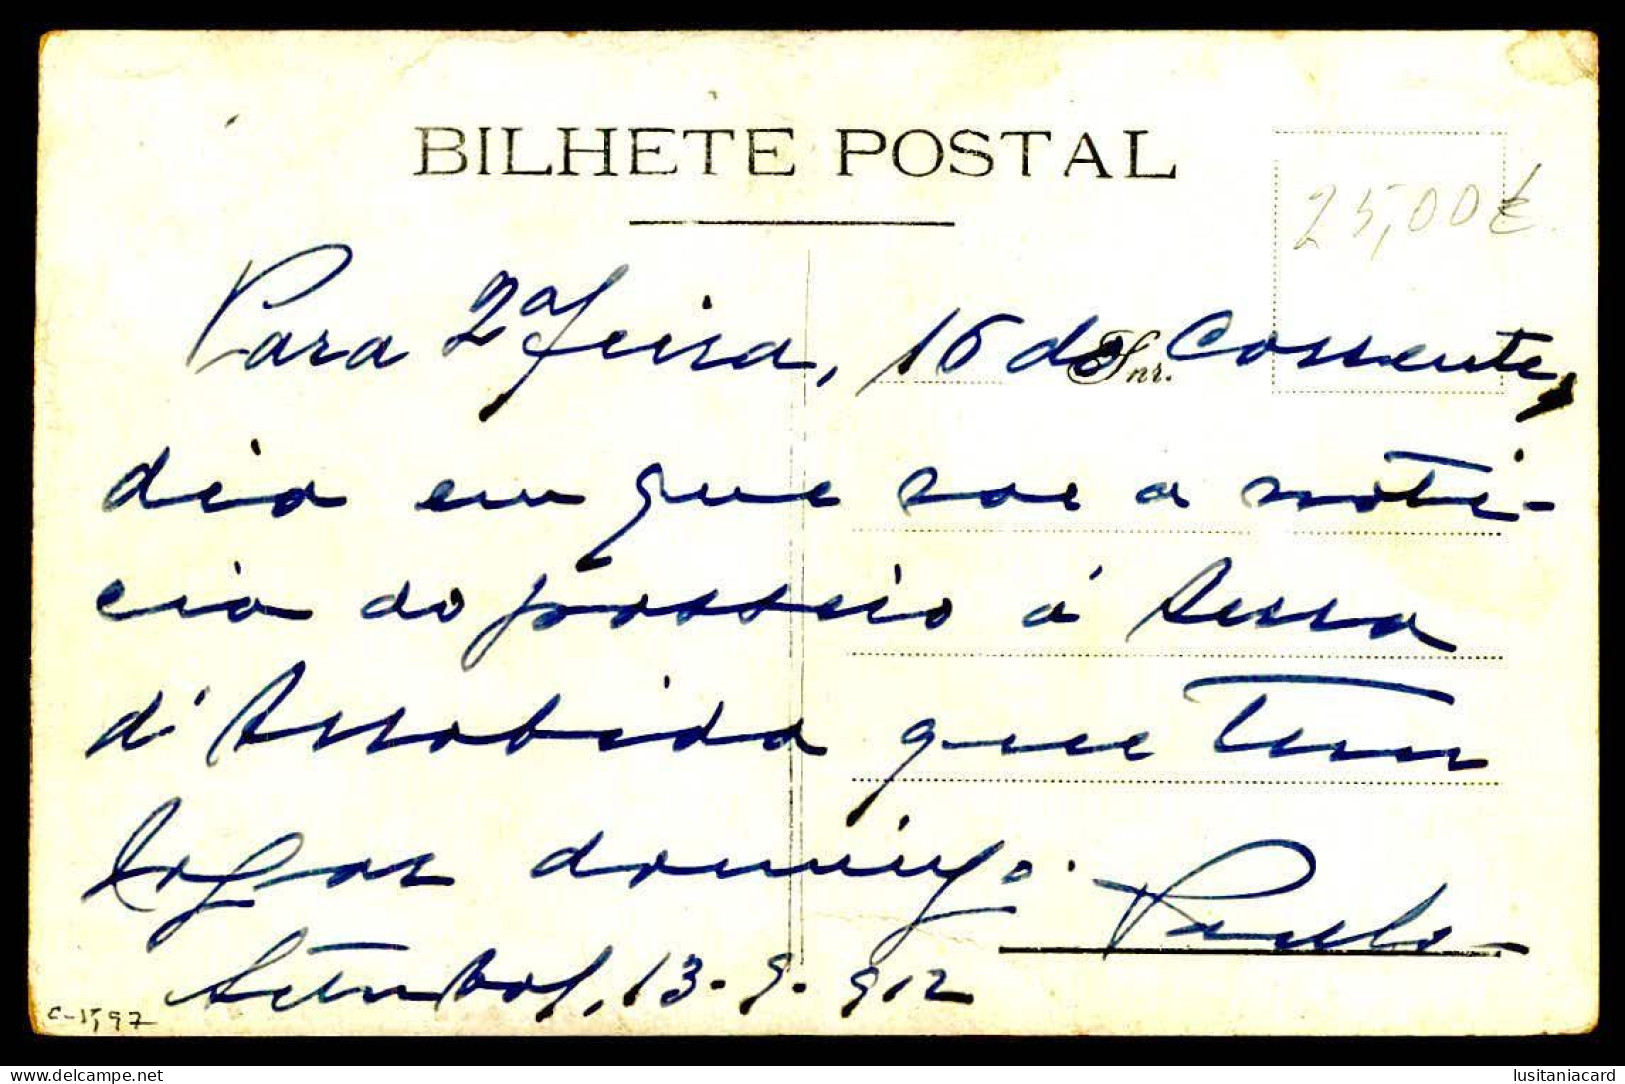 BILHETE POSTAL
25,00€
Para 2ª feira, 16 do Corrente,
Snr.
dia em que sae a noti-
cia do passeio á serra
d'Arrabida que tem
logar domingo.
Paulo
Setubal, 13-9-912
C-15,97
lusitaniacard